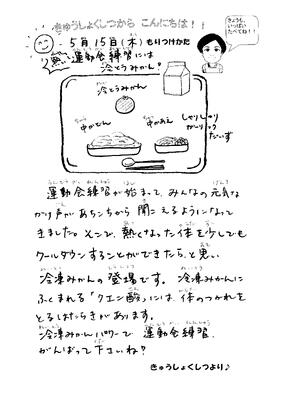 きゅうしょくしつから こんにちは！！
きょうも、
いっぱい
たべてね！！
5月15日(木)もりつけかた
暑い運動会練習には
冷とうみかん!!
冷とうみかん
中かどん
中かあえ
しゃりしゃり
ガーリック
だいず
運動会練習が始まって、みんなの元気な
かけ声があちこちから聞こえるようになって
きました。そこで、熱くなった体を少しでも
クールダウンすることができたら、と思い
冷凍みかんの登場です。冷凍みかんに
ふくまれる「クエン酸」には、体のつかれを
とるはたらきがあります。
冷凍みかんパワーで 運動会練習、
がんばって下さいね？
きゅうしょくしつより♪